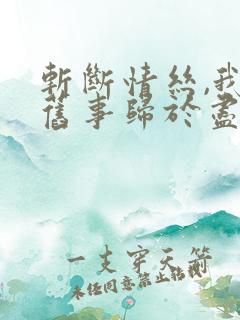 斬斷情絲,我
舊事歸於盡
一支穿天箭
未经同意禁止转载